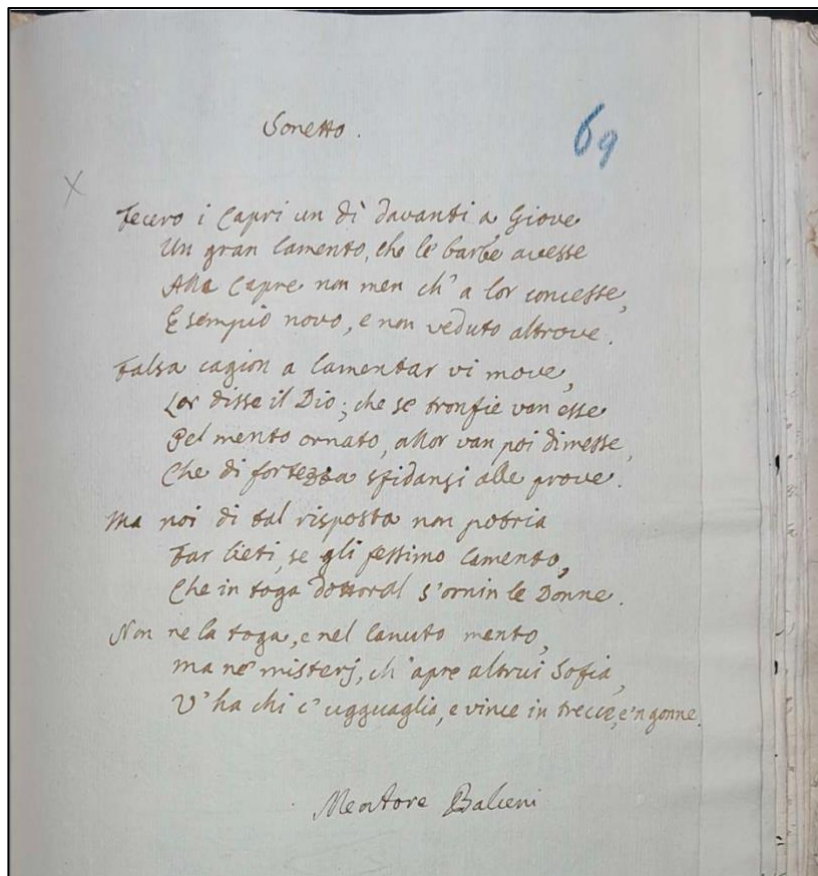 Sonetto.
69
X
Fecero i Capri un dì davanti a Giove
Un gran lamento, che le barbe avesse
Alle Capre non men ch' a lor concesse,
Esempio novo, e non veduto altrove.
Falsa cagion a lamentar vi move,
Lor disse il Dio; che se tronfie van esse
Pel mento ornato, allor van poi dimesse,
Che di fortezza sfidansi alle prove.
Ma noi di tal risposta non potria
Far lieti, se gli fessimo lamento,
Che in toga dottoral s'ornin le Donne.
Non ne la toga, e nel canuto mento,
Ma ne' misterj, ch'apre altrui Sofia,
V'ha chi c'ugguaglia, e vince in trecce, e'n gonne.
Mentore Balceni